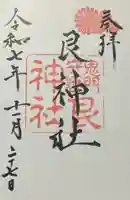 奉拝
艮神社
艮神社
令和七年十一月二十七日